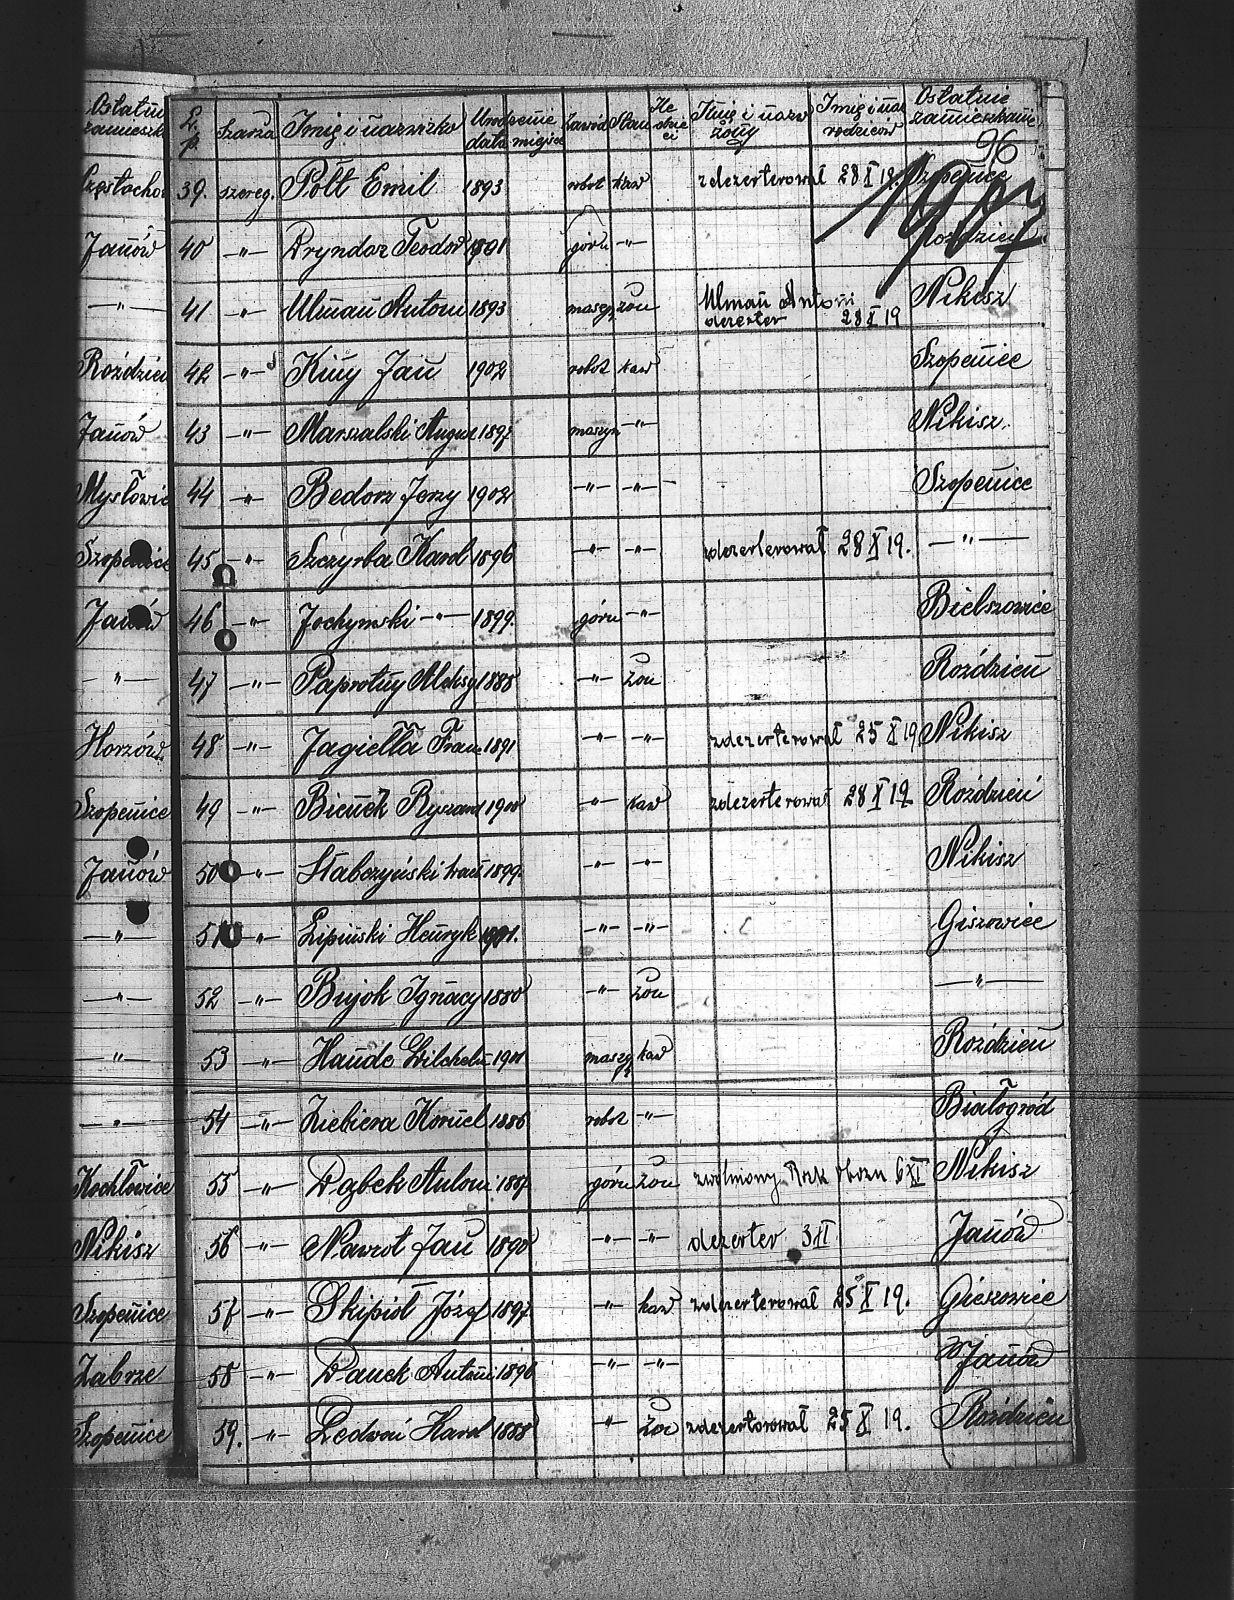 Ostatnie
zamieszk
Janów
—"—
Roździeń
Janów
Mysłowic
Szopenice
Janów
—"—
Horzów
Szopenice
Janów
—"—
—"—
—"—
—"—
Kochłowice
Nikisz
Szopenice
Zabrze
Szopenice
96
1907
L. p. Szarża Imię i nazwisko Urodzenie data miejsce Zawód Stan Ile dzieci Imię i nazw żony Imię i naz rodziców Ostatnie zamieszkanie
39. szereg. Pott Emil 1893 robot kaw zdezerterował 28 X 19. Szopenice
40 —"— Pryndoz Teodor 1901 górn —"— Roździeń
41 —"— Ulman Antoni 1893 maszy żon Ulman Antoni dezerter 28 X 19 Nikisz
42 —"— Kiny Jan 1902 robot kaw Szopenice
43 —"— Marszalski August 1897 maszyn —"— Nikisz.
44 —"— Bedorz Jerzy 1902 —"— —"— Szopenice
45 —"— Szczyrba Karol 1896 —"— —"— zdezerterował 28 X 19. —"—
46 —"— Jochymski —"— 1899. górn —"— Bielszowice
47 —"— Paprotny Aleksy 1888 —"— żon Roździeń
48 —"— Jagiełła Fran 1891 —"— —"— zdezerterował 25 X 19 Nikisz
49 —"— Ryszard 1900 —"— kaw zdezerterował 28 X 19 Roździeń
50 —"— Słabczyński 1899 —"— —"— Nikisz
51 —"— Lipiński Henryk 1901. —"— —"— Giszowiec
52 —"— Bujok Ignacy 1880 —"— żon —"—
53 —"— Haude Wilchelm 1901 maszy kaw Roździeń
54 —"— Ziebiera Kornel 1886 robot —"— Białogród
55 —"— Dąbek Anton górn żon zwolniony 6 XI Nikisz
56 —"— Nawrot Jan 1890 —"— —"— dezerter 3 II Janów
57 —"— Skipioł Józef 1897 —"— kaw zdezerterował 25 X 19. Gieszowiec
58 —"— Danek Antoni 1896 —"— —"— Janów
59. —"— Ledwoń Karol 1888 —"— żon zdezerterował 25 X 19. Roździeń